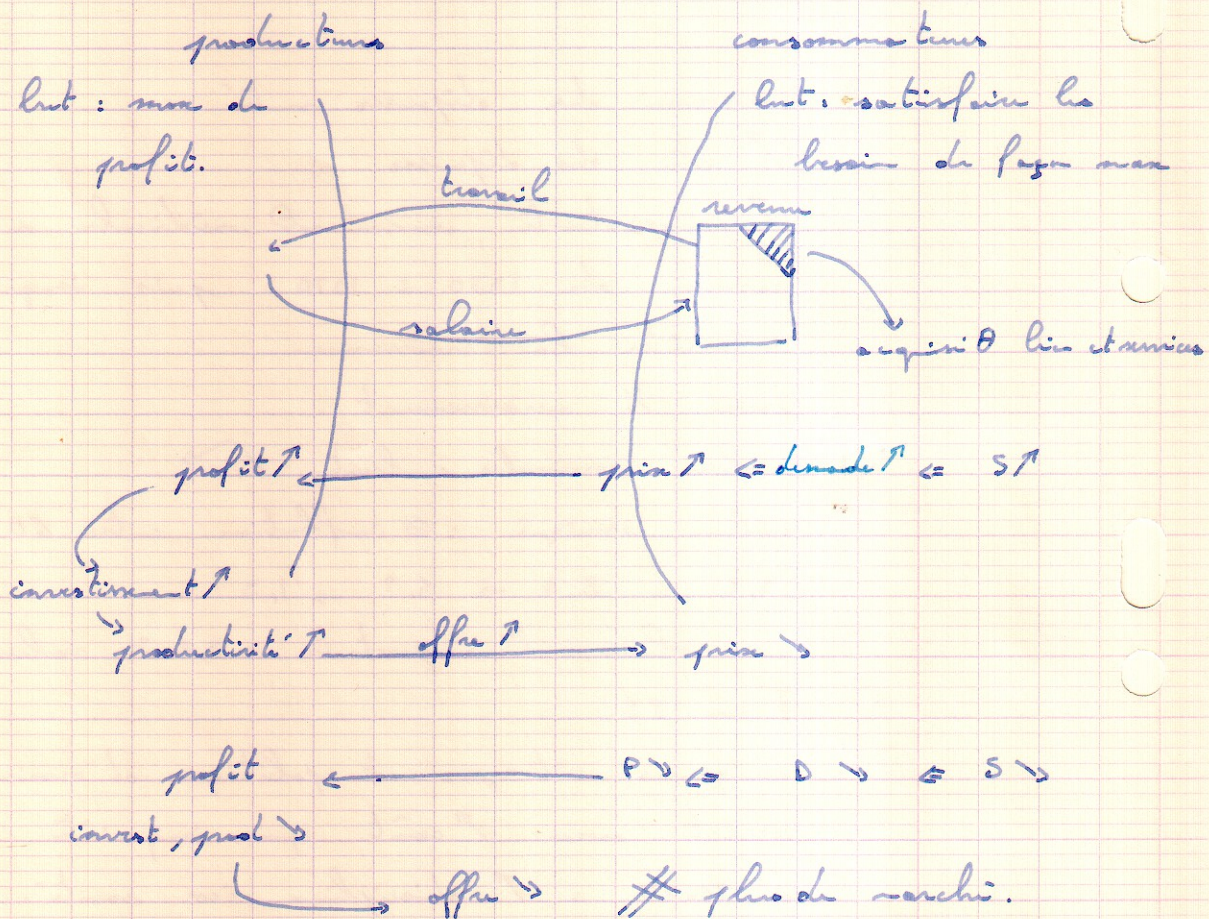 producteurs consommateurs
but : max de but : satisfaire les
profit. besoin de façon max
travail revenu
salaire
acquisiθ bien et services
profit ↗ ← prix ↗ <= demande ↗ <= S ↗
investissement ↗
↘ productivité ↗ offre ↗ → prix ↘
profit ← P ↘ <= D ↘ <= S ↘
invest, prod ↘
→ offre ↘ # plus de marché.